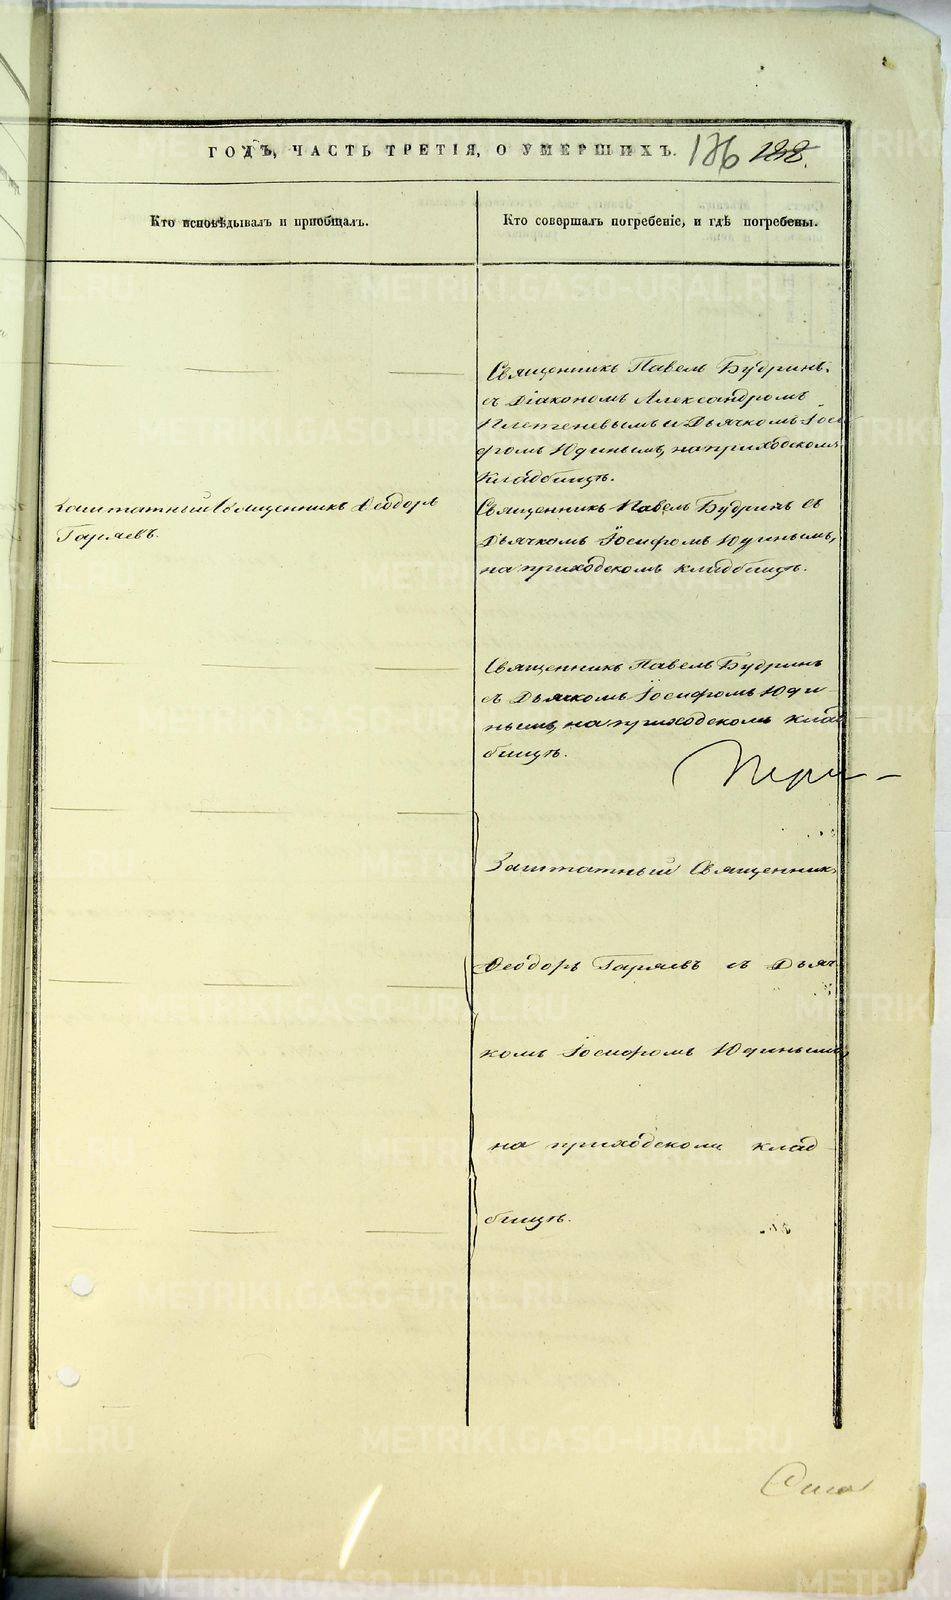 ГОДЪ, ЧАСТЬ ТРЕТІЯ, О УМЕРШИХЪ. 136 188.
Кто исповѣдывалъ и пріобщалъ.
Кто совершалъ погребеніе, и гдѣ погребены.
Священникъ Павелъ Будринъ,
съ Діакономъ Александромъ
Плетеневымъ и Дьячкомъ Іоси
фомъ Юдинымъ, на приходскомъ
Кладбищѣ.
Заштатный Священникъ Ѳеодоръ
Гаряевъ.
Священникъ Павелъ Будринъ съ
Дьячкомъ Іосифомъ Юдинымъ,
на приходскомъ кладбищѣ.
Священникъ Павелъ Будринъ
съ Дьячкомъ Іосифомъ Юди-
нымъ, на приходскомъ клад
бищѣ.
Заштатный Священникъ
Ѳеодоръ Гаряевъ съ Дьяч
комъ Іосифомъ Юдинымъ,
на приходскомъ клад
бищѣ.
METRIKI.GASO-URAL.RU